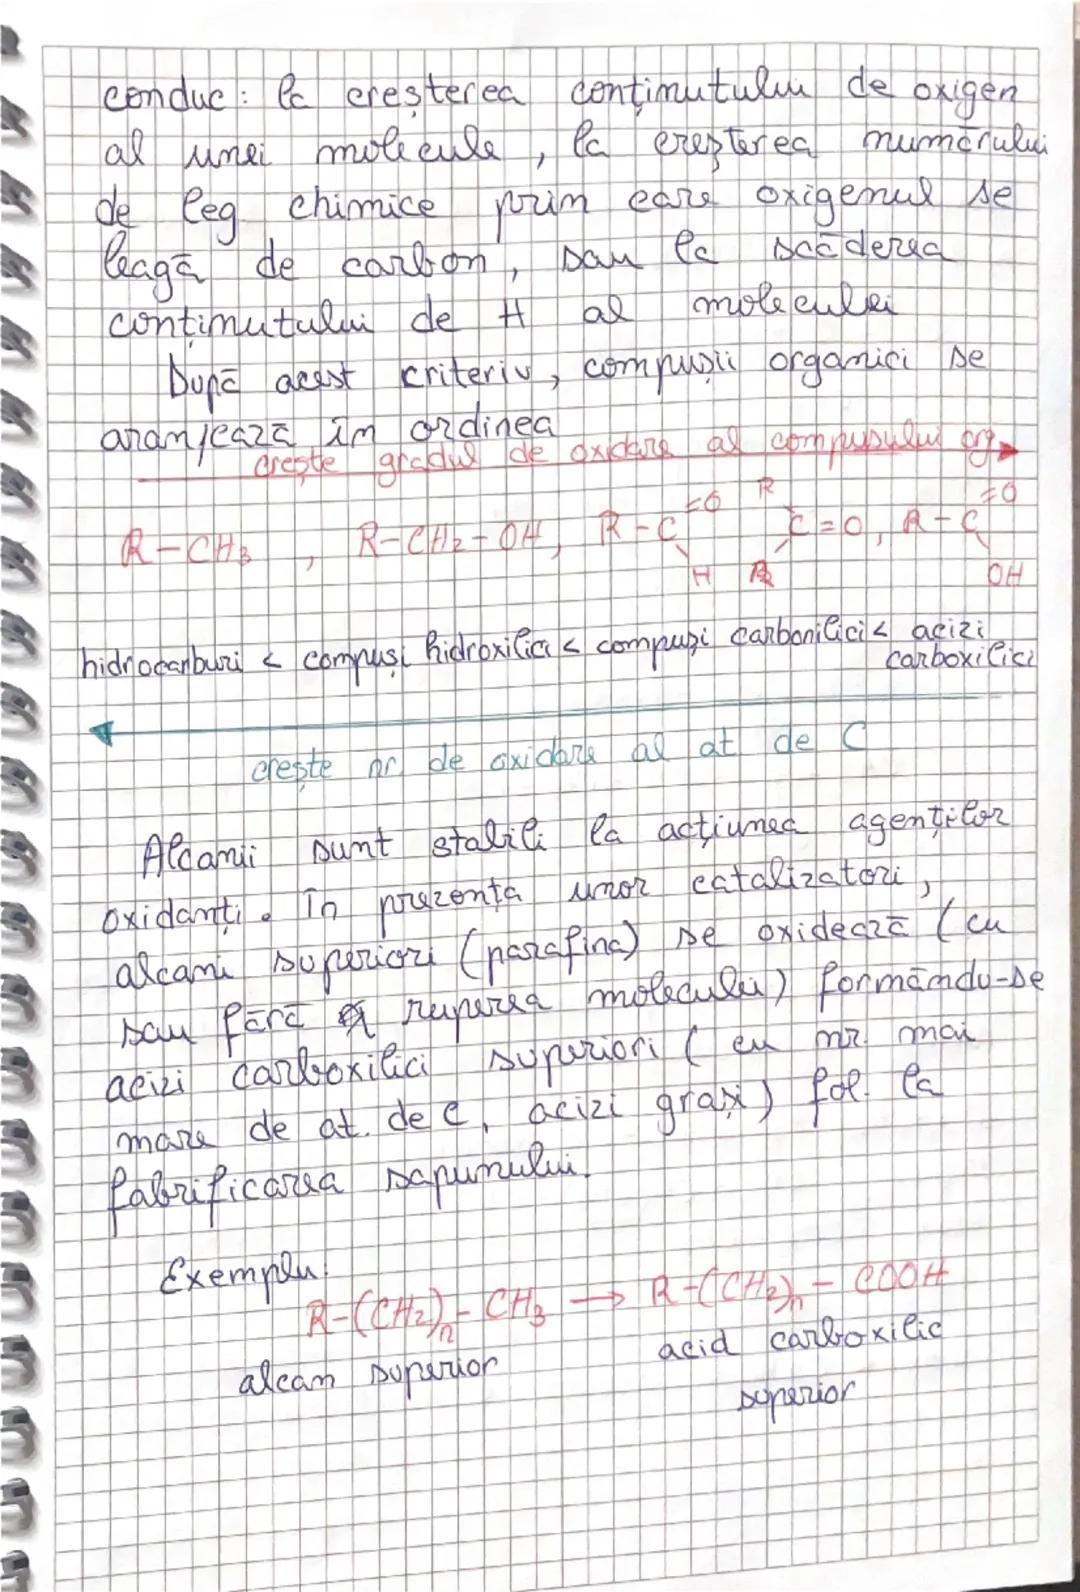 conduc: la creșterea conținutului de oxigen
al unei molecule, la creșterea numărului
de leg chimice prin care oxigenul se
leagă de carbon, sau la scăderea
conținutului de H al moleculei
După acest criteriu, compușii organici se
aranjează în ordinea
crește gradul de oxidare al compusului org
R-CH3, R-CH2-OH, R-C=O H, R R C=O, R-C=O OH
hidrocarburi < compuși hidroxilici < compuși carbonilici < acizi
carboxilici
crește nr de oxidare al at de C
Alcanii sunt stabili la acțiunea agenților
oxidanți. În prezența unor catalizatori,
alcani superiori (parafina) se oxidează (cu
sau fără ruperea moleculei) formându-se
acizi carboxilici superiori (cu nr. mai
mare de at. de C, acizi grași) fol. la
fabrificarea sapunului.
Exemplu:
R-(CH2)n-CH3 → R-(CH2)n-COOH
alcan superior acid carboxilic
superior